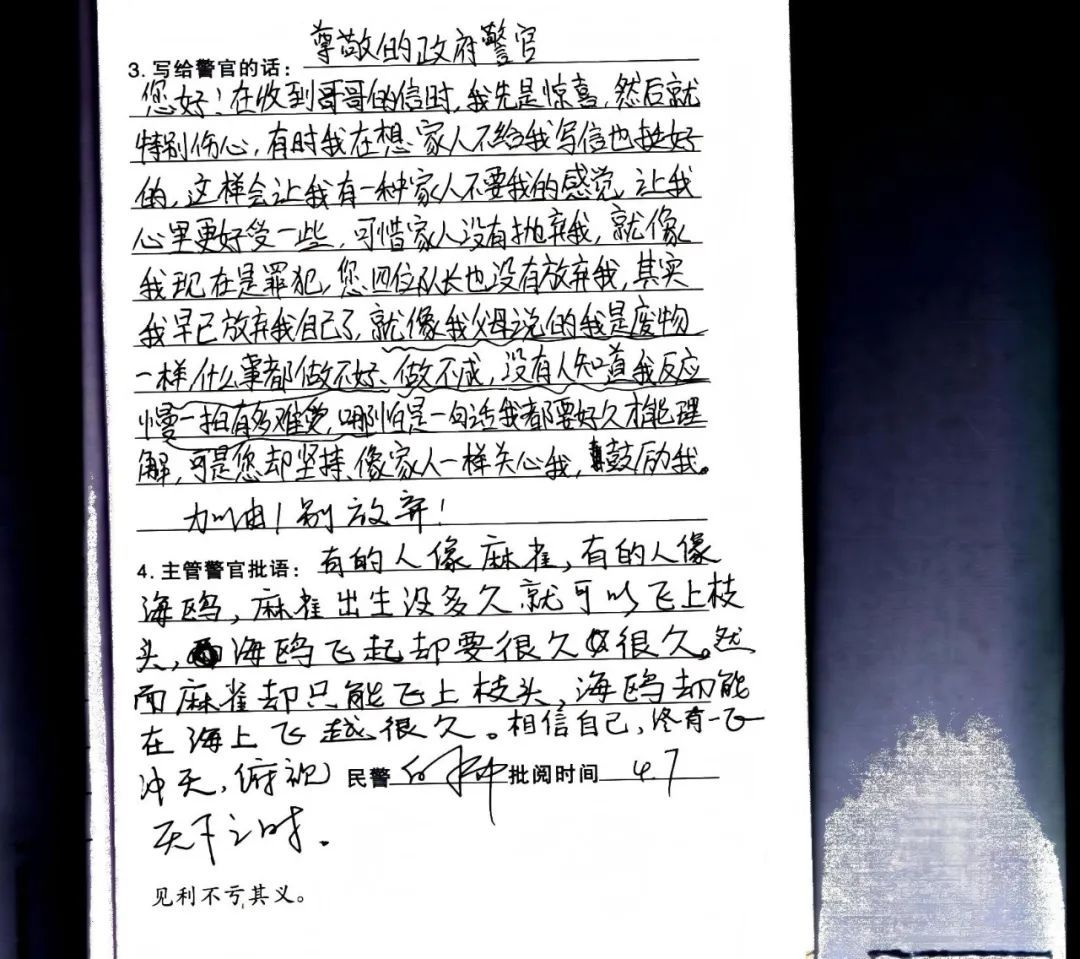 尊敬的政府警官
3. 写给警官的话：
您好！在收到哥哥的信时，我先是惊喜，然后就
特别伤心，有时我在想家人不给我写信也挺好
的，这样会让我有一种家人不要我的感觉，让我
心里更好受一些，可惜家人没有抛弃我，就像
我现在是罪犯，您四位队长也没有放弃我，其实
我早已放弃我自己了，就像我父母说的我是废物
一样什么事都做不好、做不成，没有人知道我反应
慢一拍有多难受，哪怕是一句话我都要好久才能理
解，可是您却坚持、像家人一样关心我，鼓励我。
加油！别放弃！
4. 主管警官批语：有的人像麻雀，有的人像
海鸥，麻雀出生没多久就可以飞上枝
头，海鸥飞起却要很久很久。然
而麻雀却只能飞上枝头，海鸥却能
在海上飞越很久。相信自己，终有一飞
冲天，俯视 民警 批阅时间 4.7
天下之时。
见利不亏其义。